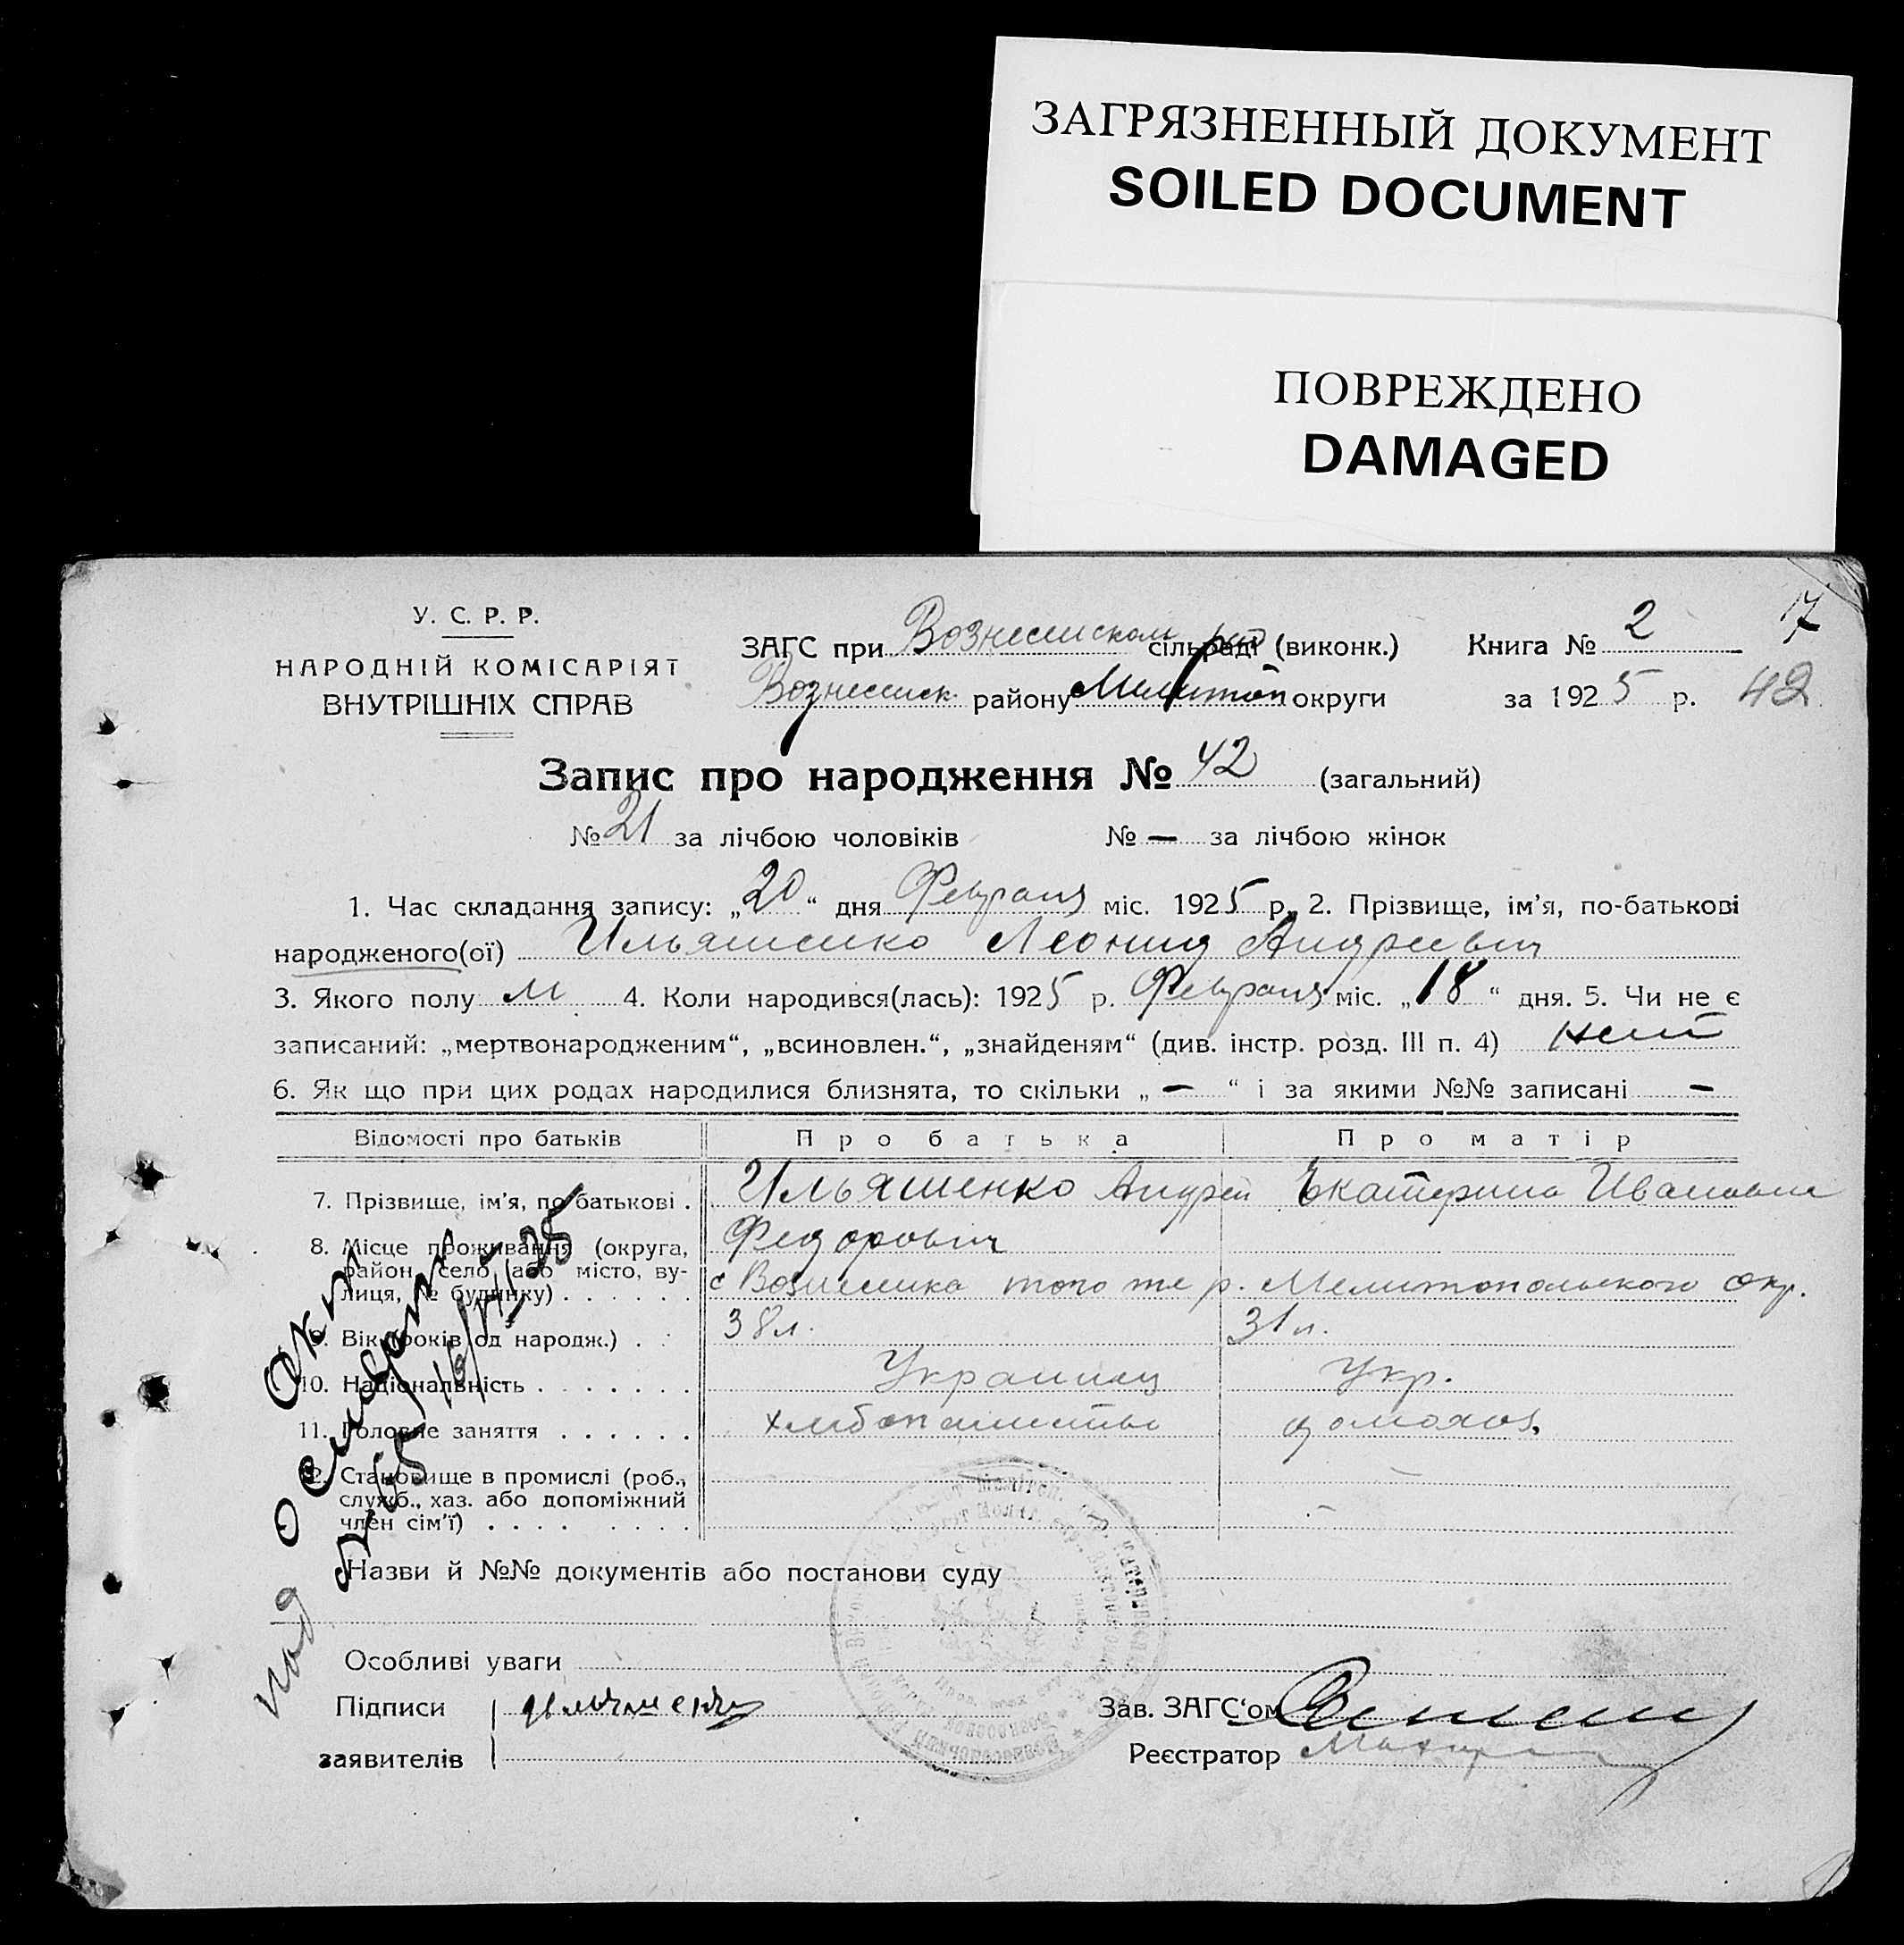 ЗАГРЯЗНЕННЫЙ ДОКУМЕНТ
SOILED DOCUMENT
ПОВРЕЖДЕНО
DAMAGED
17
У. С. Р. Р.
НАРОДНІЙ КОМІСАРІЯТ
ВНУТРІШНІХ СПРАВ
ЗАГС при Вознесенском сільраді (виконк.) Книга № 2
Вознесенск. району Мелитоп округи за 1925 р. 42
Запис про народження № 42 (загальний)
№ 21 за лічбою чоловіків № — за лічбою жінок
1. Час складання запису: „20“ дня Февраля міс. 1925 р. 2. Прізвище, ім'я, по-батькові
народженого(ої) Ильяшенко Леонид Андреевич
3. Якого полу М 4. Коли народився(лась): 1925 р. Февраля міс. „18“ дня. 5. Чи не є
записаний: „мертвонародженим“, „всиновлен.“, „знайденям“ (див. інстр. розд. III п. 4) нет
6. Як що при цих родах народилися близнята, то скільки „ — “ і за якими №№ записані —
Відомості про батьків Про батька Про матір
7. Прізвище, ім'я, по батькові . Ильяшенко Андрей Екатерина Ивановна
Федорович
8. Місце проживання (округа,
район, село або місто, ву-
лиця, № будинку) . . . . . . с Вознесенка того же р. Мелитопольского окр.
9. Вік (років од народж.) . . 38 л. 31 л.
10. Національність . . . . . . . Украинец Укр.
11. Головне заняття . . . . . . хлебопашество домохоз.
12. Становище в промислі (роб.,
служб., хаз. або допоміжний
член сім'ї) . . . . . . . . -
Назви й №№ документів або постанови суду
Особливі уваги
Підписи Ильяшенко Зав. ЗАГС‘ом
заявителів Реєстратор
акт
о смерти
№ 65